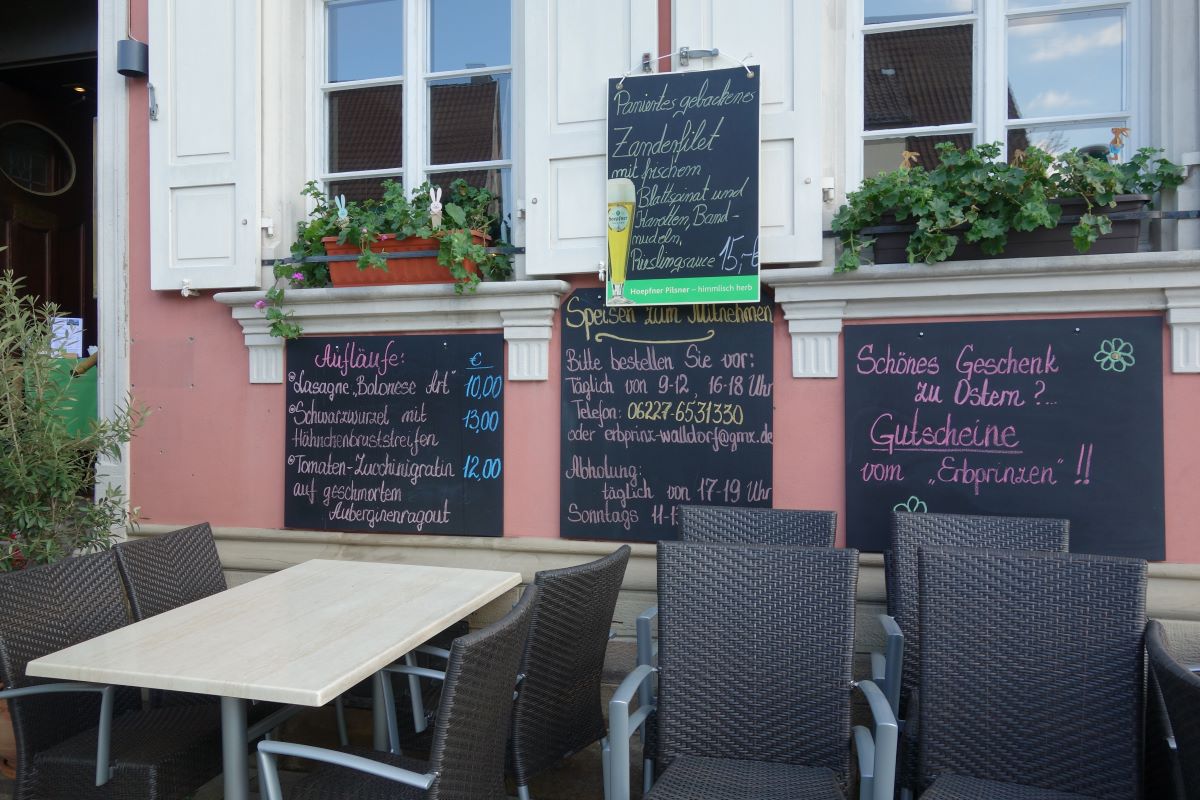 Paniertes gebackenes
Zanderfilet
mit frischem
Blattspinat und
Karotten, Band-
nudeln,
Rieslingsauce 15,-€
hoepfner
Hoepfner Pilsner – himmlisch herb
Aufläufe: €
Lasagne „Bolonese Art" 10,00
Schwarzwurzel mit 13,00
Hähnchenbruststreifen
Tomaten-Zucchinigratin 12,00
auf geschmortem
Auberginenragout
Speisen zum Mitnehmen
Bitte bestellen Sie vor:
Täglich von 9-12, 16-18 Uhr
Telefon: 06227-6531330
oder erbprinz-walldorf@gmx.de
Abholung:
täglich von 17-19 Uhr
Sonntags 11-13
Schönes Geschenk
zu Ostern?...
Gutscheine
vom „Erbprinzen" !!